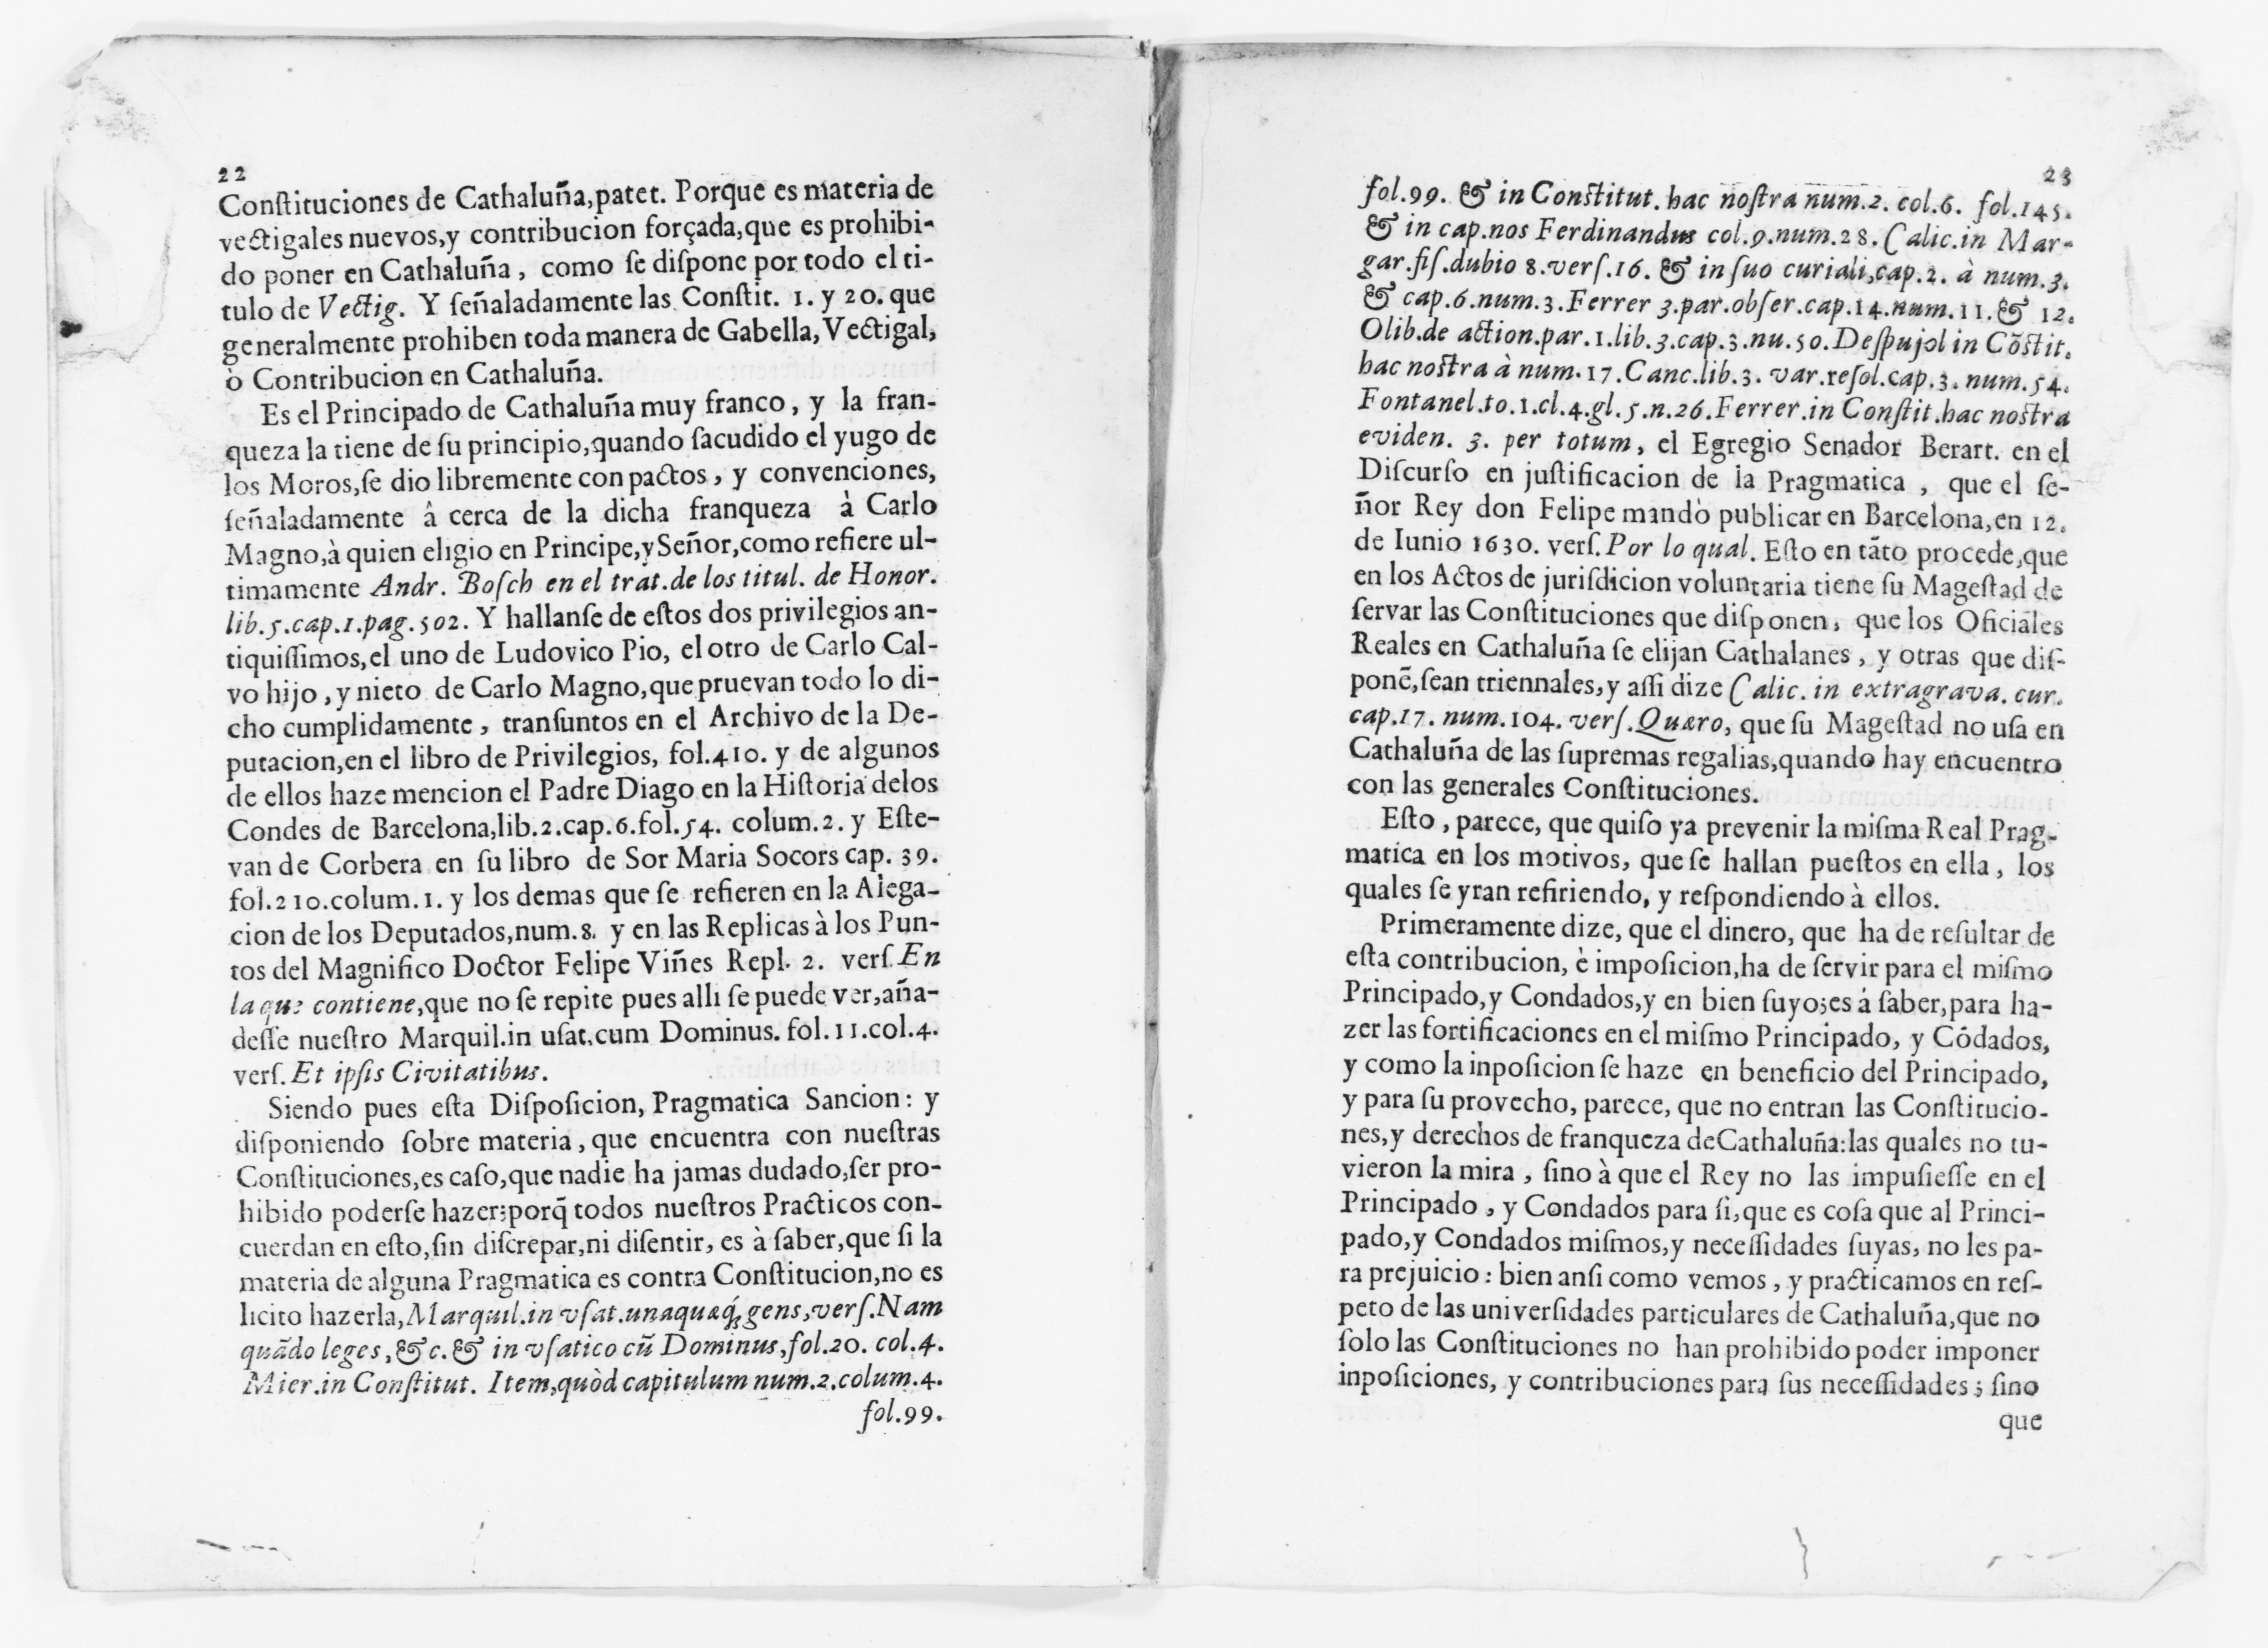 22
Conſtituciones de Cathaluña,patet. Porque es materia de
vectigales nuevos,y contribucion forçada,que es prohibi-
do poner en Cathaluña, como ſe diſpone por todo el ti-
tulo de Vectig. Y ſeñaladamente las Conſtit. 1. y 20. que
generalmente prohiben toda manera de Gabella, Vectigal,
ò Contribucion en Cathaluña.
Es el Principado de Cathaluña muy franco, y la fran-
queza la tiene de ſu principio,quando ſacudido el yugo de
los Moros,ſe dio libremente con pactos, y convenciones,
ſeñaladamente â cerca de la dicha franqueza à Carlo
Magno,à quien eligio en Principe,y Señor,como refiere ul-
timamente Andr. Boſch en el trat.de los titul. de Honor.
lib.5.cap.1.pag.502. Y hallanſe de eſtos dos privilegios an-
tiquiſſimos,el uno de Ludovico Pio, el otro de Carlo Cal-
vo hijo, y nieto de Carlo Magno,que pruevan todo lo di-
cho cumplidamente, tranſuntos en el Archivo de la De-
putacion,en el libro de Privilegios, fol.410. y de algunos
de ellos haze mencion el Padre Diago en la Hiſtoria delos
Condes de Barcelona,lib.2.cap.6.fol.54. colum.2. y Eſte-
van de Corbera en ſu libro de Sor Maria Socors cap. 39.
fol.210.colum.1. y los demas que ſe refieren en la Alega-
cion de los Deputados,num.8. y en las Replicas à los Pun-
tos del Magnifico Doctor Felipe Viñes Repl. 2. verſ. En
la que contiene,que no ſe repite pues alli ſe puede ver,aña-
deſſe nueſtro Marquil.in uſat.cum Dominus. fol.11.col.4.
verſ. Et ipſis Civitatibus.
Siendo pues eſta Diſpoſicion, Pragmatica Sancion: y
diſponiendo ſobre materia, que encuentra con nueſtras
Conſtituciones,es caſo,que nadie ha jamas dudado,ſer pro-
hibido poderſe hazer;porq̃ todos nueſtros Practicos con-
cuerdan en eſto,ſin diſcrepar,ni diſentir, es à ſaber,que ſi la
materia de alguna Pragmatica es contra Conſtitucion,no es
licito hazerla,Marquil.in vſat.unaquæq́; gens,verſ.Nam
quãdo leges,& c.& in vſatico cũ Dominus,fol.20. col.4.
Mier.in Conſtitut. Item,quòd capitulum num.2.colum.4.
fol.99.
23
fol.99. & in Conſtitut.hac noſtra num.2. col.6. fol.145.
& in cap.nos Ferdinandus col.9.num.28.Calic.in Mar-
gar.fiſ.dubio 8.verſ.16. & in ſuo curiali,cap.2. à num.3.
& cap.6.num.3.Ferrer 3.par.obſer.cap.14.num.11.& 12.
Olib.de action.par.1.lib.3.cap.3.nu.50.Deſpujol in Cõſtit.
hac noſtra à num.17.Canc.lib.3. var.reſol.cap.3.num.54.
Fontanel.to.1.cl.4.gl.5.n.26.Ferrer.in Conſtit.hac noſtra
eviden. 3. per totum, el Egregio Senador Berart. en el
Diſcurſo en juſtificacion de la Pragmatica , que el ſe-
ñor Rey don Felipe mandò publicar en Barcelona,en 12.
de Iunio 1630. verſ.Por lo qual. Eſto en tãto procede,que
en los Actos de juriſdicion voluntaria tiene ſu Mageſtad de
ſervar las Conſtituciones que diſponen, que los Oficiales
Reales en Cathaluña ſe elijan Cathalanes , y otras que diſ-
ponẽ,ſean triennales,y aſſi dize Calic. in extragrava. cur.
cap.17. num.104. verſ.Quæro, que ſu Mageſtad no uſa en
Cathaluña de las ſupremas regalias,quando hay encuentro
con las generales Conſtituciones.
Eſto , parece, que quiſo ya prevenir la miſma Real Prag-
matica en los motivos, que ſe hallan pueſtos en ella , los
quales ſe yran refiriendo, y reſpondiendo à ellos.
Primeramente dize, que el dinero, que ha de reſultar de
eſta contribucion, è impoſicion,ha de ſervir para el miſmo
Principado,y Condados,y en bien ſuyo;es á ſaber,para ha-
zer las fortificaciones en el miſmo Principado, y Cõdados,
y como la inpoſicion ſe haze en beneficio del Principado,
y para ſu provecho, parece, que no entran las Conſtitucio-
nes,y derechos de franqueza deCathaluña:las quales no tu-
vieron la mira , ſino à que el Rey no las impuſieſſe en el
Principado , y Condados para ſi,que es coſa que al Princi-
pado,y Condados miſmos,y neceſſidades ſuyas, no les pa-
ra prejuicio: bien anſi como vemos , y practicamos en reſ-
peto de las univerſidades particulares de Cathaluña,que no
ſolo las Conſtituciones no han prohibido poder imponer
inpoſiciones, y contribuciones para ſus neceſſidades; ſino
que